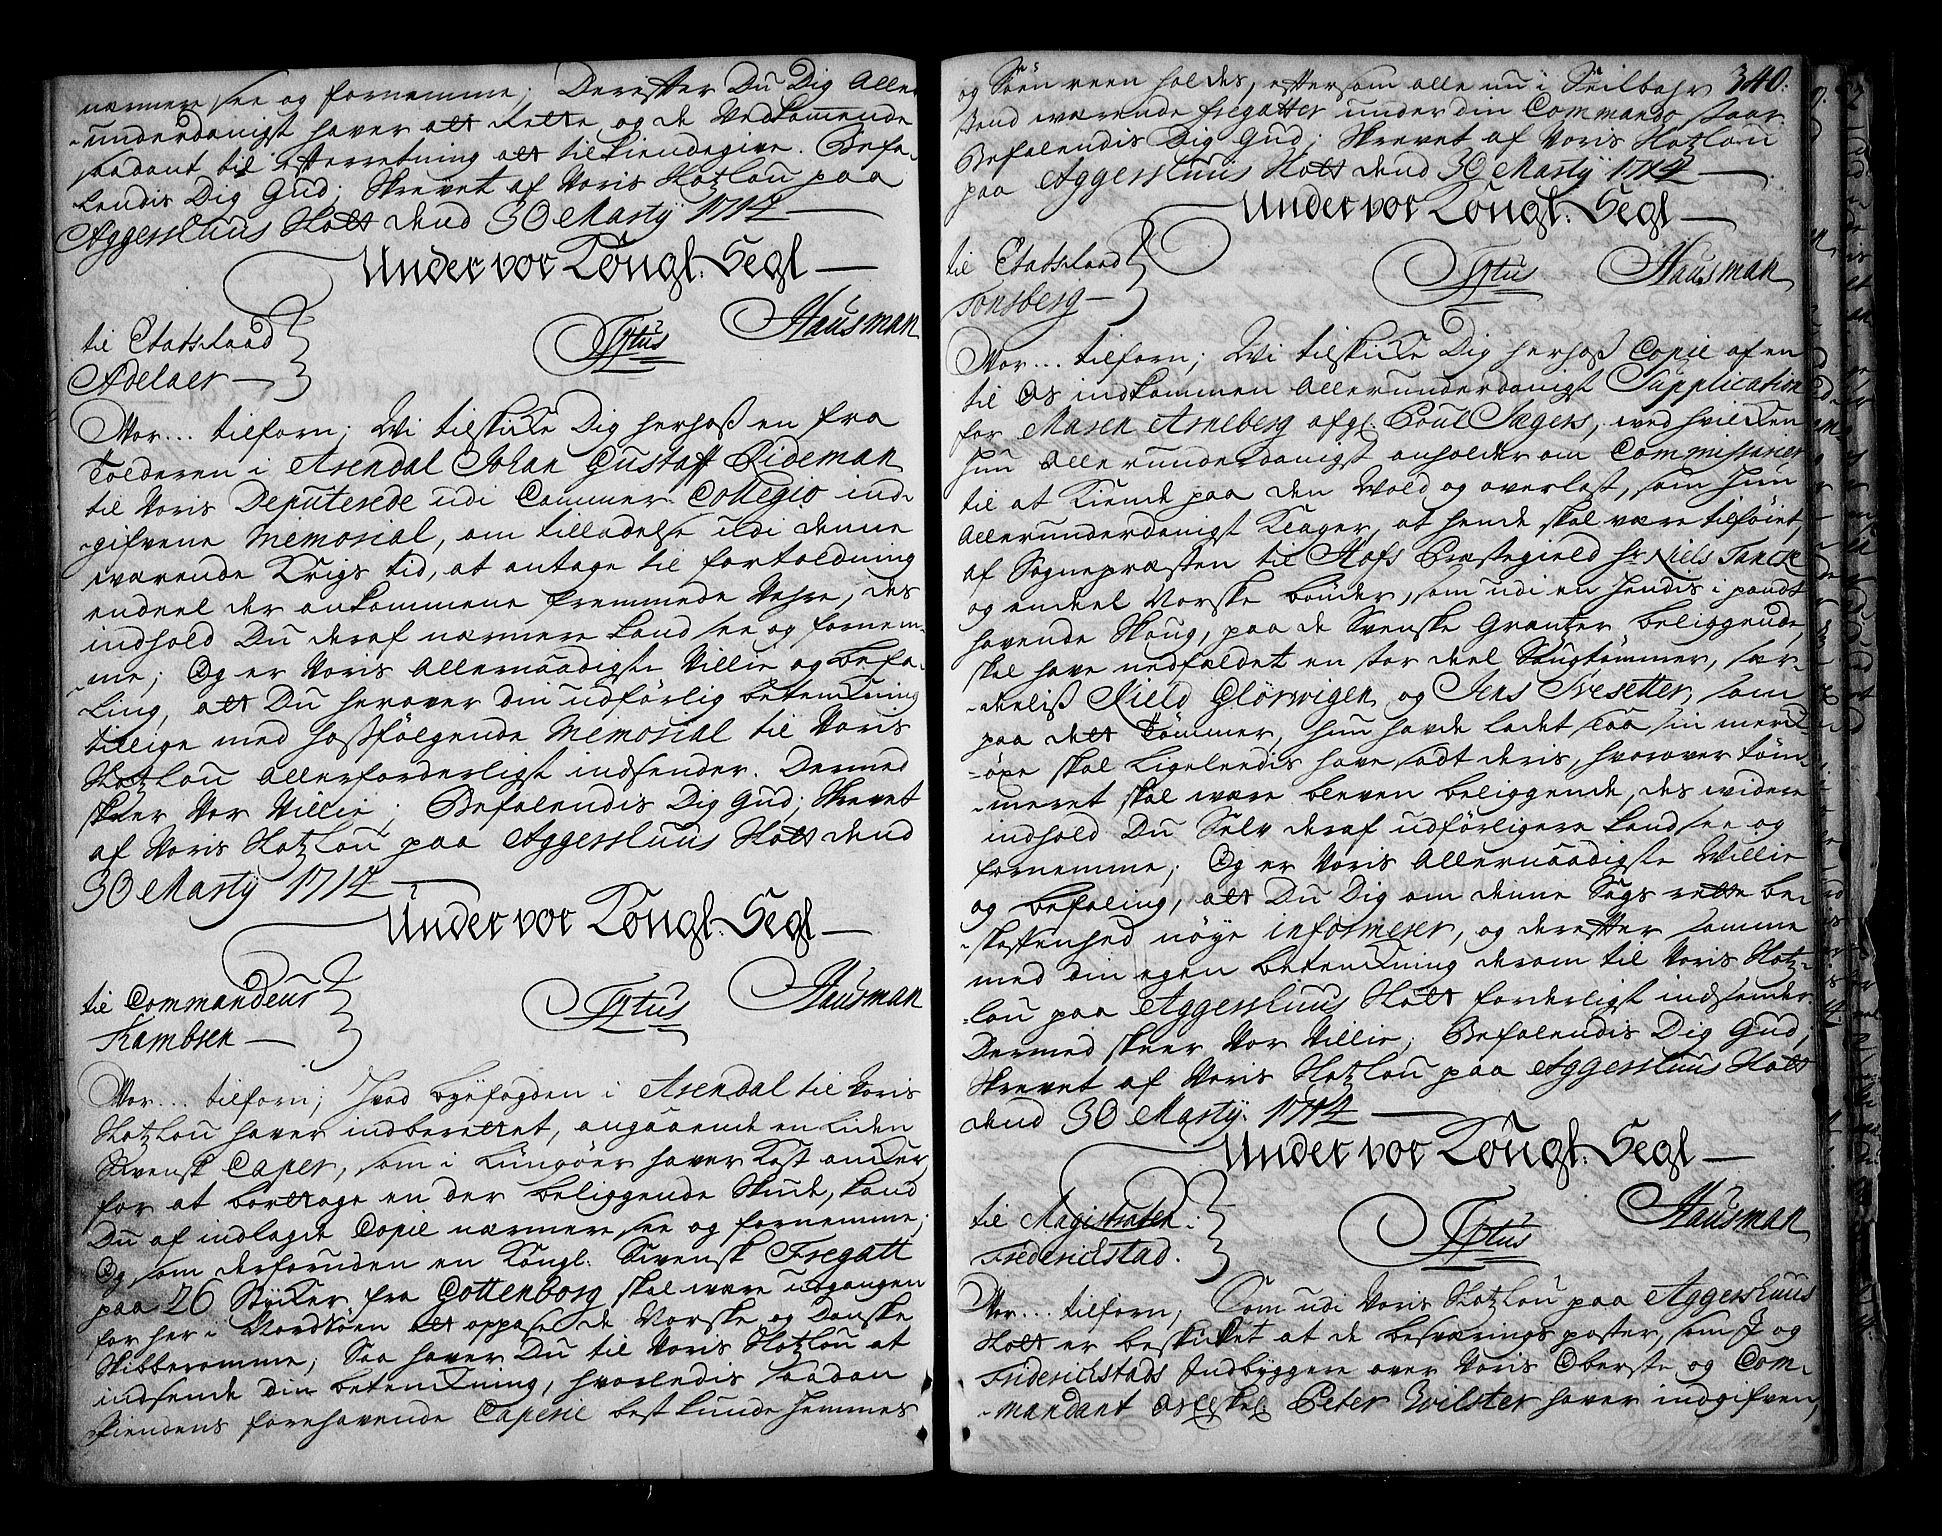 nærmere see og fornemme; Derefter Du Dig Aller
-underdanigst haver at rette og de Vedkommende
saadant til efterretning at tilkiendegive. Befa-
lendis Dig Gud; Skrevet af Voris Slotzlou paa
Aggershuus Slott dend 30 Martÿ 1712
Under vor Kongl: Segl
til Etatsraad
Adelaer
Tytus
Hausman
Vor... tilforn; Wi tilskicke Dig herhoß en fra
Tolderen i Arendal Johan Gustaff Rideman
til Voris Deputerede udi Cammer Collegio ind-
-gifvene Memorial, om tilladelse udi denne
wærende Krigs tid, at antage til fortoldning
endeel der ankommene fremmede Vahre, des
indhold Du deraf nærmere kand see og fornem-
-me; Og er Voris Allernaadigste Villie og befa-
ling, at Du herover din udførlig betenckning
tillige med hoßfølgende Memorial til Voris
Slotzlou Allerforderligst indsender. Dermed
skeer Vor Villie; Befalendis Dig Gud; Skrevet
af Voris Slotzlou paa Aggershuus Slott dend
30 Martÿ 1712
Under vor Kongl: Segl
til Commandeur
Tambsen
Tytus
Hausman
Vor... tilforn; Hvad byefogden i Arendal til Voris
Slotzlou haver indberettet, angaaende en liden
Svensk Caper, som i Lungöer haver kast ancker
for at borttage en der beliggende Skude, kand
Du af indlagde Copie nærmere see og fornemme;
Og som derforuden en Kongl: Svensk Fregatt
paa 26 Stycker fra Gottenborg skal være udgangen
for her i Nordsöen at oppasse de Norske og Danske
Skibberomme; Saa haver Du til Voris Slotzlou at
indsende din betenckning, hvorledis saadan
Fiendens forehavende Caperie best kunde hemmes
og Söen reen holdes, eftersom alle nu i Seilbahr 340.
stand wærende fregatter under din Commando staar
Befalendis Dig Gud; Skrevet af Voris Slotzlou
paa Aggershuus Slott dend 30 Martÿ 1712
Under vor Kongl: Segl
til Etatsraad
Tonsberg
Tytus
Hausman
Vor... tilforn; Wi tilskicke Dig herhoß Copie af en
til Os indkommen Allerunderdanigst Supplication
for Maren Arneberg afgl. Poul Jagers, ved hvilcken
hun Allerunderdanigst anholder om Commissarier
til at kiende paa den Vold og overlast, som hun
Allerunderdanigst klager, at hende skal være tilföiet,
af Sognepræsten til Hofs Præstegield hr Niels Tanck
og endeel Norske bönder, som udi en hendis i pandt
havende Skoug, paa de Svenske Grantzer beliggende,
skal have nedfældet en stor deel Saugtömmer, sær-
-deeliß Kield Glörvigen og Jens Tresetter, som
paa dett Tömmer, hun havde ladet slaa sin merck
-öxe skal ligeleedis have sadt deris, hvorover töm-
-meret skal være bleven beliggende, des widere
indhold Du Selv deraf udförligere kand see og
fornemme; Og er Voris Allernaadigste Willie
og befaling, at Du Dig om denne Sags rette be-
-skaffenhed nöye informerer, og derefter samme
med din egen betenckning derom til Voris Slotz-
-lou paa Aggershuus Slott forderligst indsender.
Dermed skeer Vor Villie; Befalendis Dig Gud;
Skrevet af Voris Slotzlou paa Aggershuus Slott
dend 30 Martÿ: 1712
Under vor Kongl: Segl
til Magistraten i
Friderichstad.
Tytus
Hausman
Vor... tilforn; Som udi Voris Slotzlou paa Aggershuus
Slott er beskicket at de besværings poster, som I og
Friderichstads Indbyggere over Voris Oberste og Com-
-mandant Peter Wilster haver indgifven,